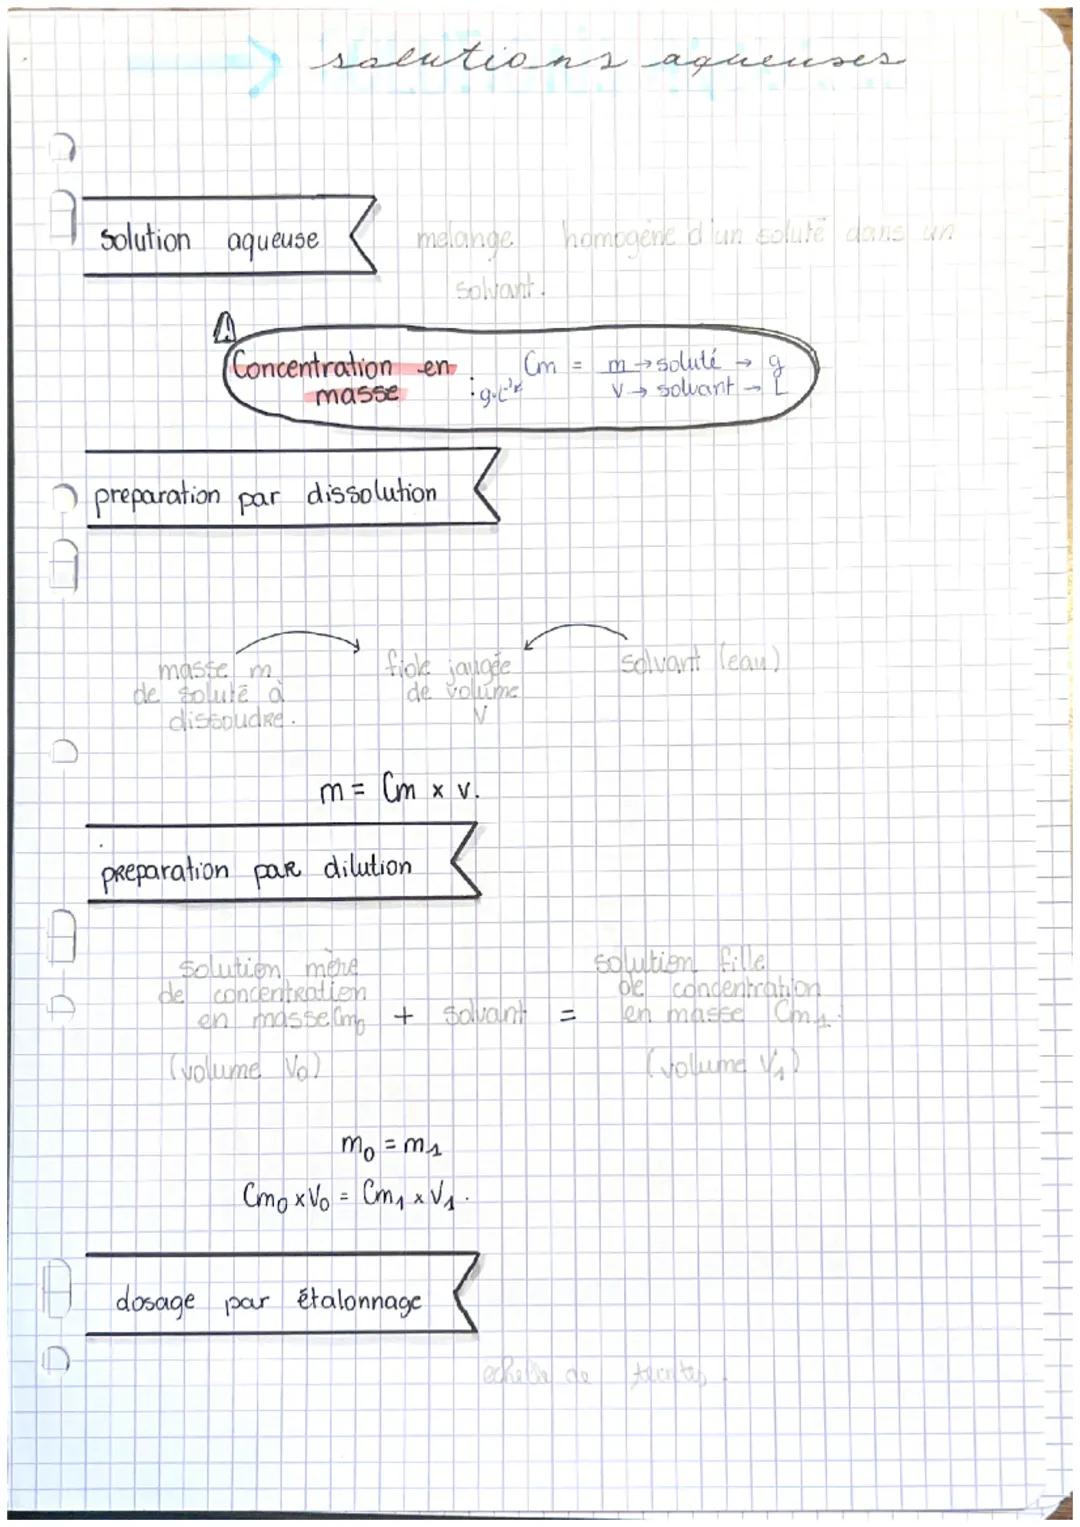 solutions aqueuses
solution aqueuse
melange homogène d'un soluté dans un
solvant.
Concentration en
masse
: g.L⁻¹
Cm = m → soluté → g
V → solvant → L
preparation par dissolution
masse m
de soluté à
dissoudre.
fiole jaugée
de volume
V
solvant (eau)
m = Cm x v.
preparation par dilution
solution mère
de concentration
en masse Cm₀
(volume V₀)
+ solvant =
solultion fille
de concentration
en masse Cm₁.
(volume V₁)
m₀ = m₁
Cm₀ x V₀ = Cm₁ x V₁.
dosage par étalonnage
echelle de teintes.